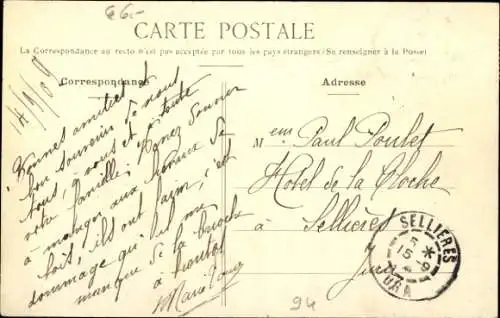 €6.-
CARTE POSTALE
La Correspondance au recto n'est pas acceptée par tous les pays étrangers (Se renseigner à la Poste)
Correspondance
Adresse
14/9/09
Bonnes amitiés &
bon souvenir de nous
tous, à vous et à toute
votre famille. Venez donner
à manger aux hommes de
bois, ils ont faim, c'est
dommage qu'il me
manque de la brioche
à bientôt
M em Paul Poulet
Hôtel de la Cloche
à Sellières
Jura
SELLIERES
15 - 9
JURA
94